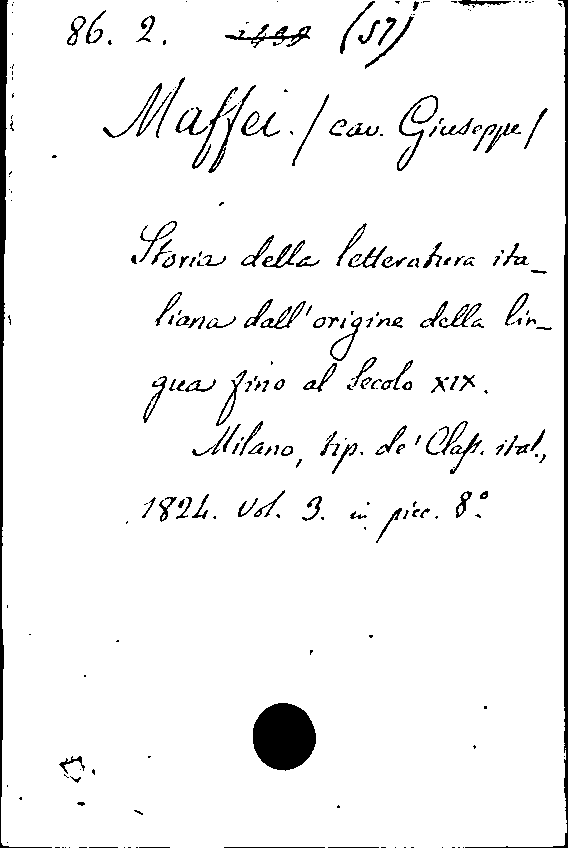 86. 2. (57)
Maffei. / cav. Giuseppe /
Storia della letteratura ita_
liana dall'origine della lin_
gua fino al Secolo XIX.
Milano, tip. de' Class. ital.,
1824. Vol. 3. in picc. 8.°